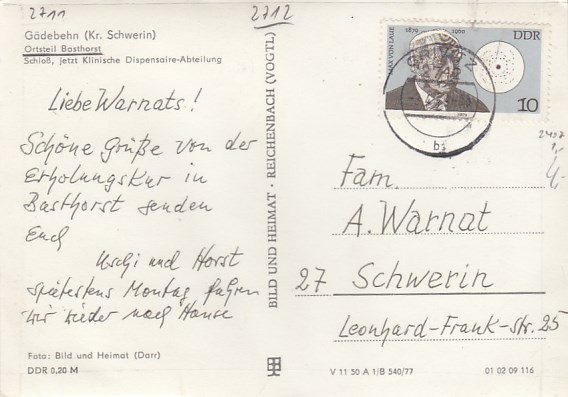 2711
2712
Gädebehn (Kr. Schwerin)
Ortsteil Basthorst
Schloß, jetzt Klinische Dispensaire-Abteilung
Liebe Warnats!
Schöne Grüße von der
Erholungskur in
Basthorst senden
Euch
Uschi und Horst
spätestens Montag fahren
wir wieder nach Hause
Foto: Bild und Heimat (Darr)
DDR 0,20 M
BILD UND HEIMAT · REICHENBACH (VOGTL)
MAX VON LAUE
1879 1960
DDR
10
b
4,-
Fam.
A. Warnat
27 Schwerin
Leonhard-Frank-Str. 25
V 11 50 A 1/B 540/77
01 02 09 116